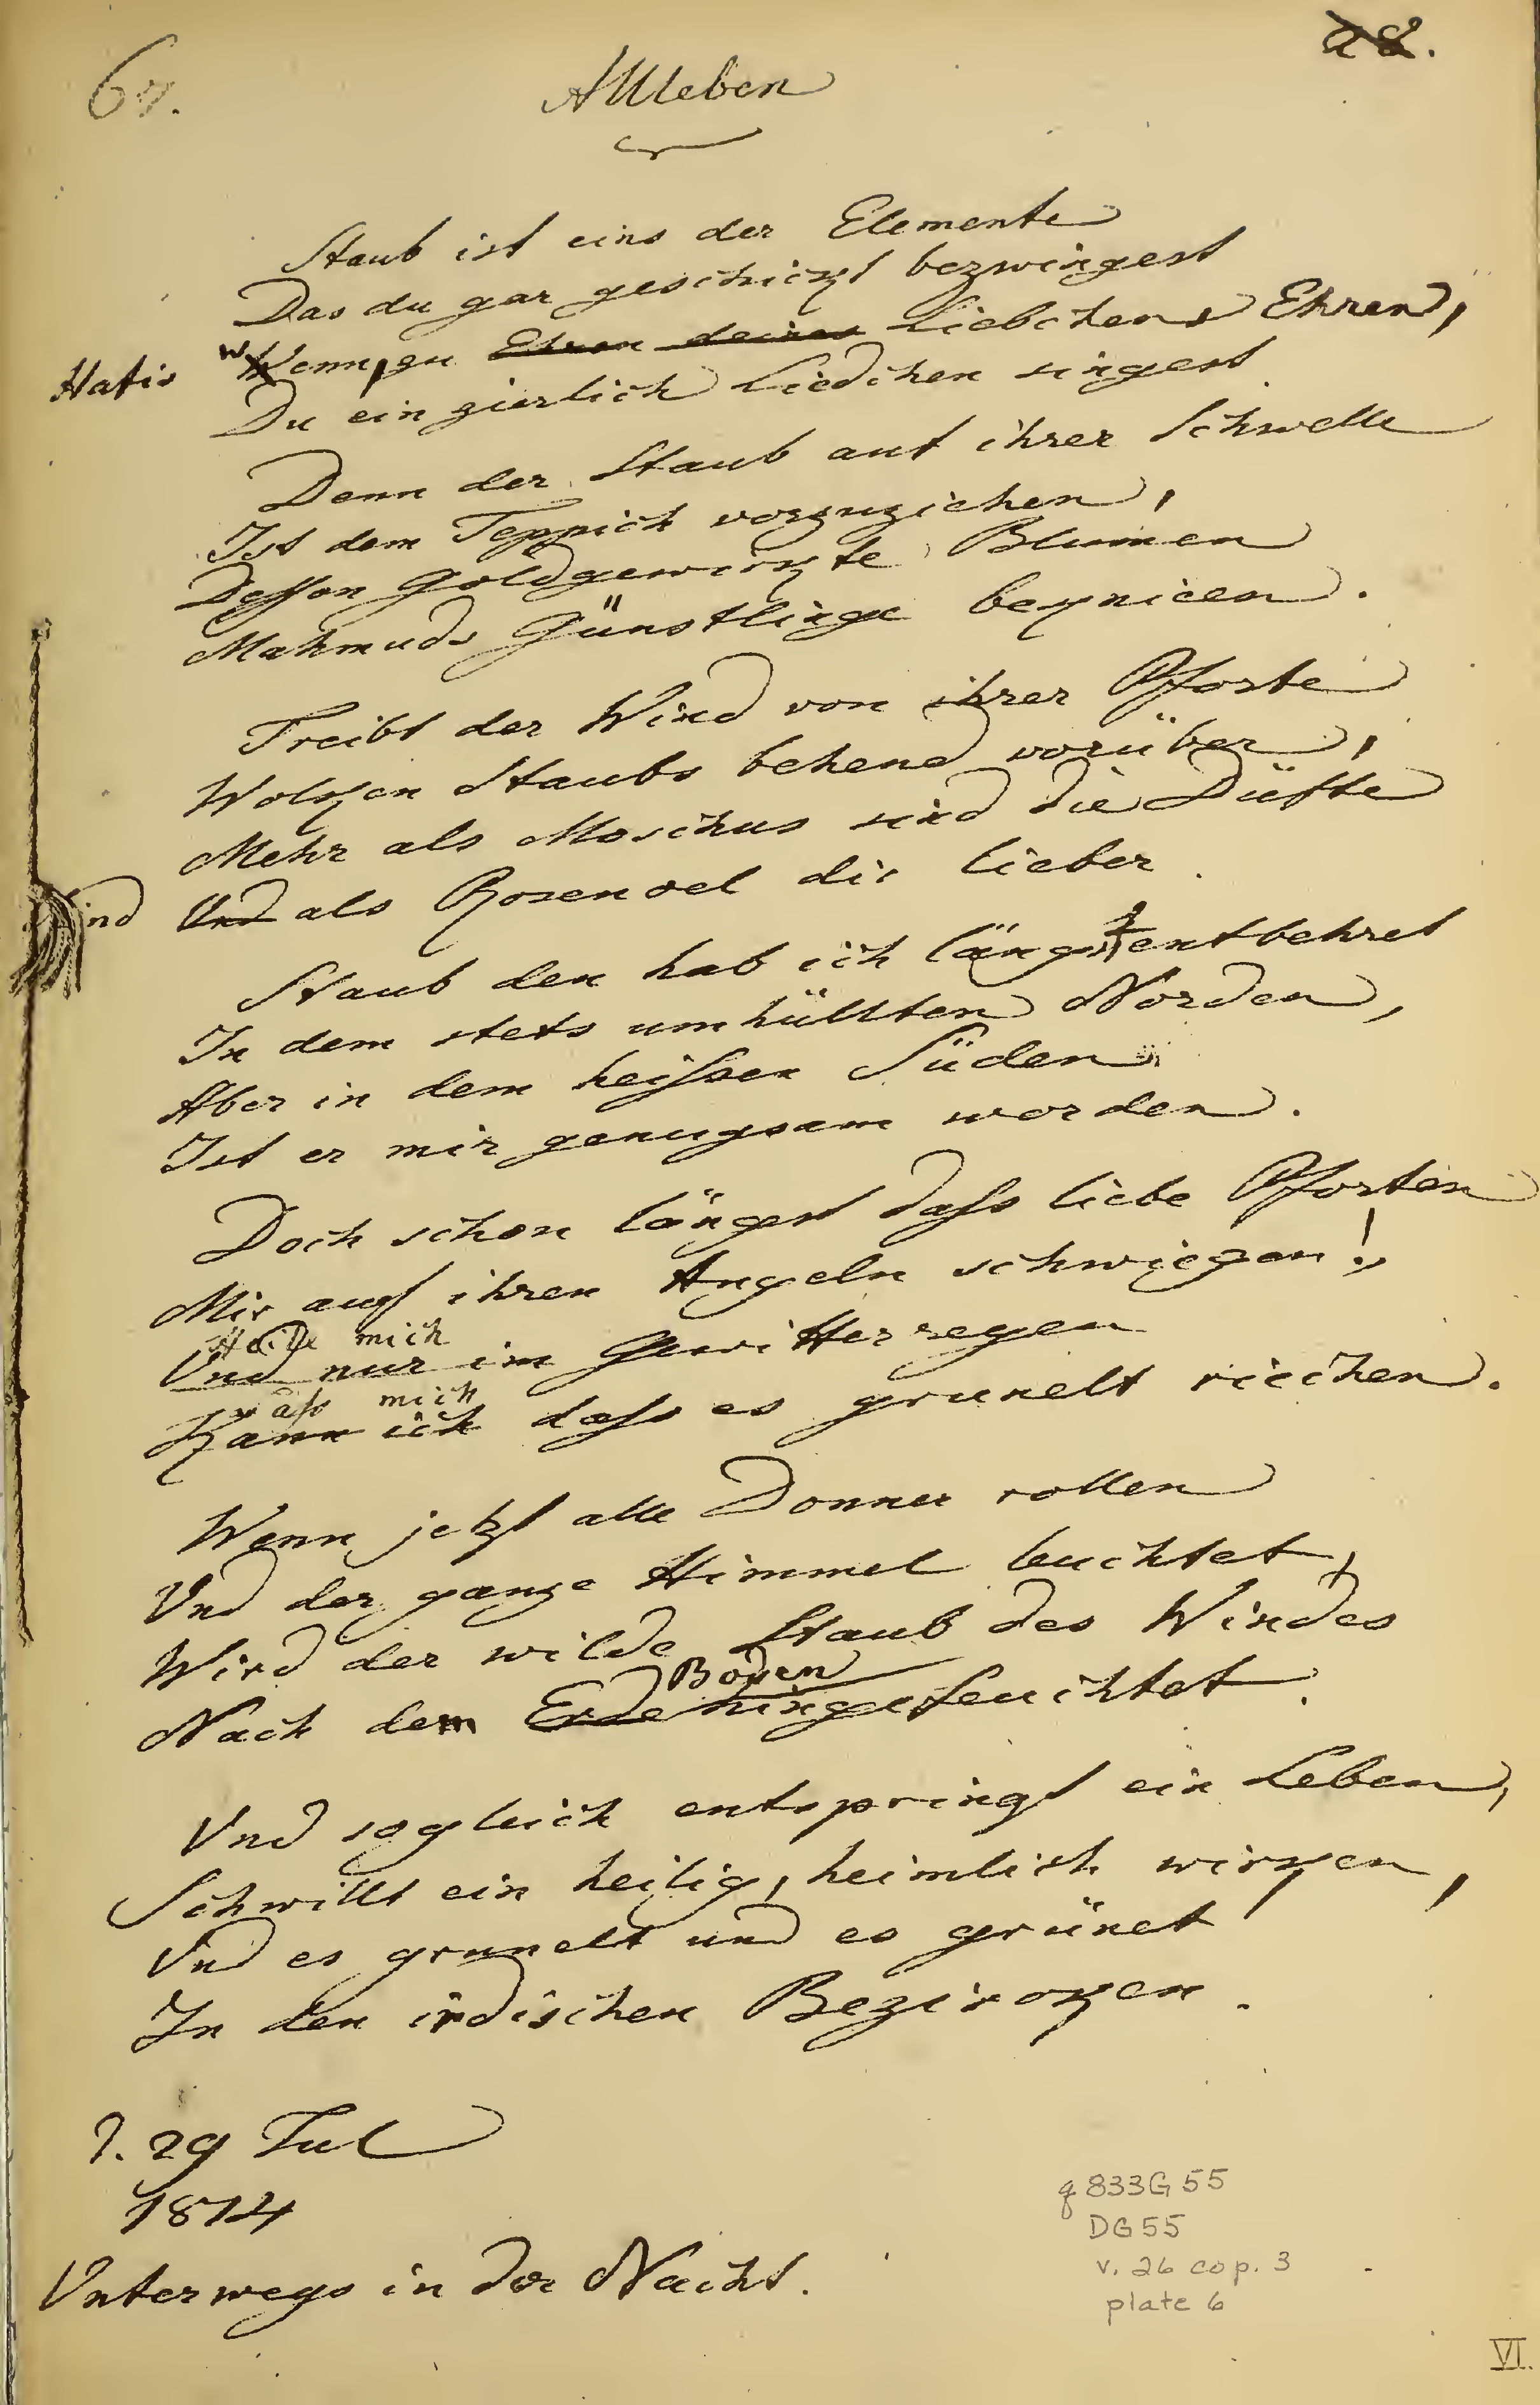 67.
28.
Allleben
Staub ist eins der Elemente
Das du gar geschickt bezwingest
Hafis wenn, zu Ehren deines Liebchens Ehren,
Du ein zierlich Liedchen singest.
Denn der Staub auf ihrer Schwelle
Ist dem Teppich vorzuziehen,
Dessen Goldgewirkte Blumen
Mahmuds Günstlinge beknieen.
Treibt der Wind von ihrer Pforte
Wolken Staubs behend vorüber,
Mehr als Moschus sind die Düfte
Und Und als Rosenoel dir lieber.
Staub den hab ich längst entbehret
In dem stets umhüllten Norden,
Aber in dem heissen Süden
Ist er mir genugsam worden.
Doch schon längst dass liebe Pforten
Mir auf ihren Angeln schwiegen!,
Heile mich
Und nur im Gewitterregen
Lass mich
Kann ich dass es grunelt riechen.
Wenn jetzt alle Donner rollen
Und der ganze Himmel leuchtet,
Wird der wilde Staub des Windes
Boden
Nach dem Erde hingefeuchtet.
Und sogleich entspringt ein Leben,
Schwillt ein heilig, heimlich wirken,
Und es grunelt und es grünet
In den irdischen Bezircken.
d. 29 Jul
1814
Unterwegs in der Nacht.
q833G55
DG55
v. 26 cop. 3
plate 6
VI.